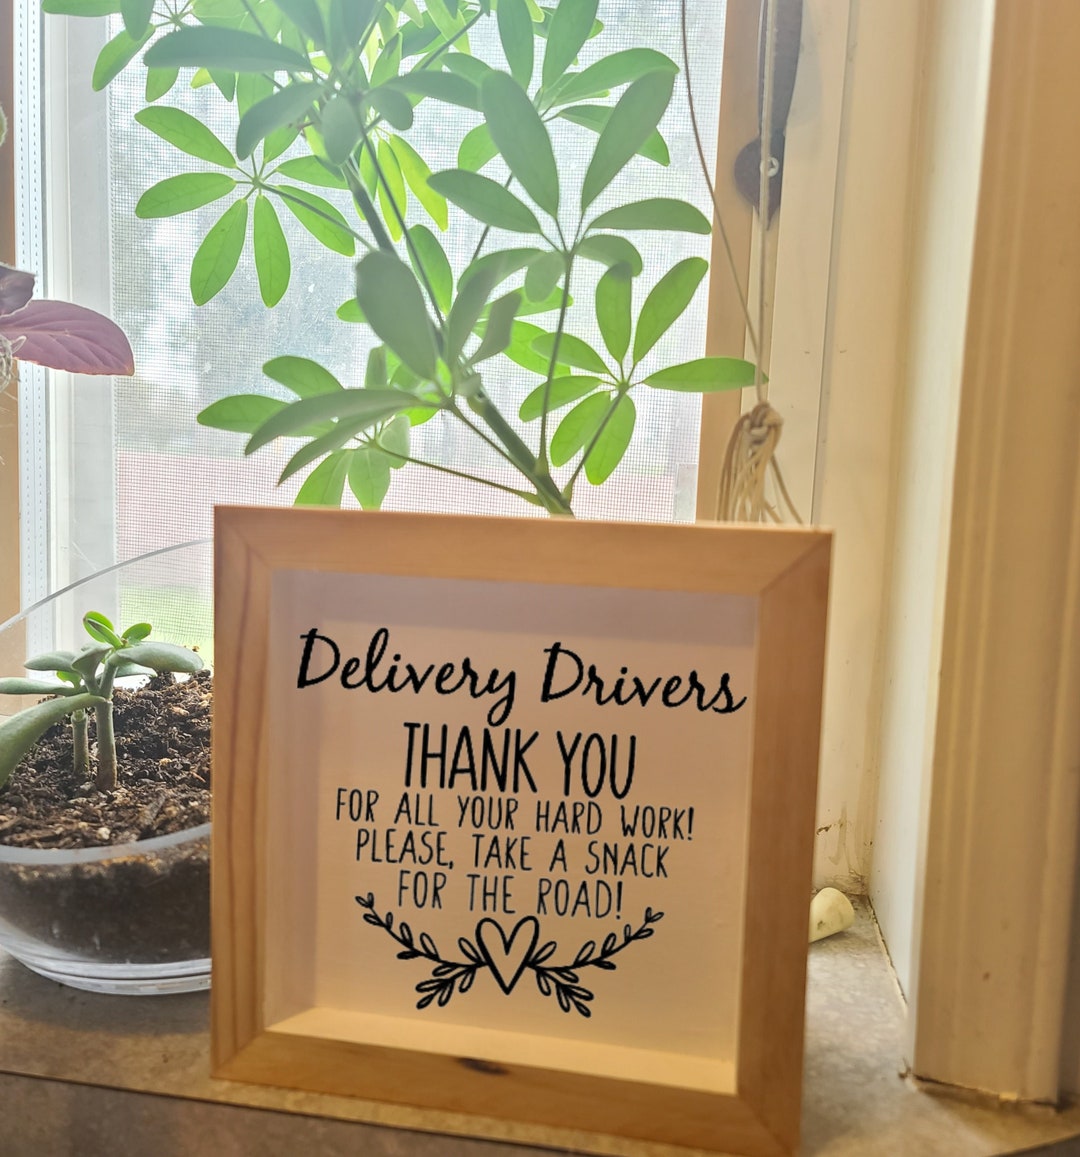 Delivery Drivers
THANK YOU
FOR ALL YOUR HARD WORK!
PLEASE, TAKE A SNACK
FOR THE ROAD!